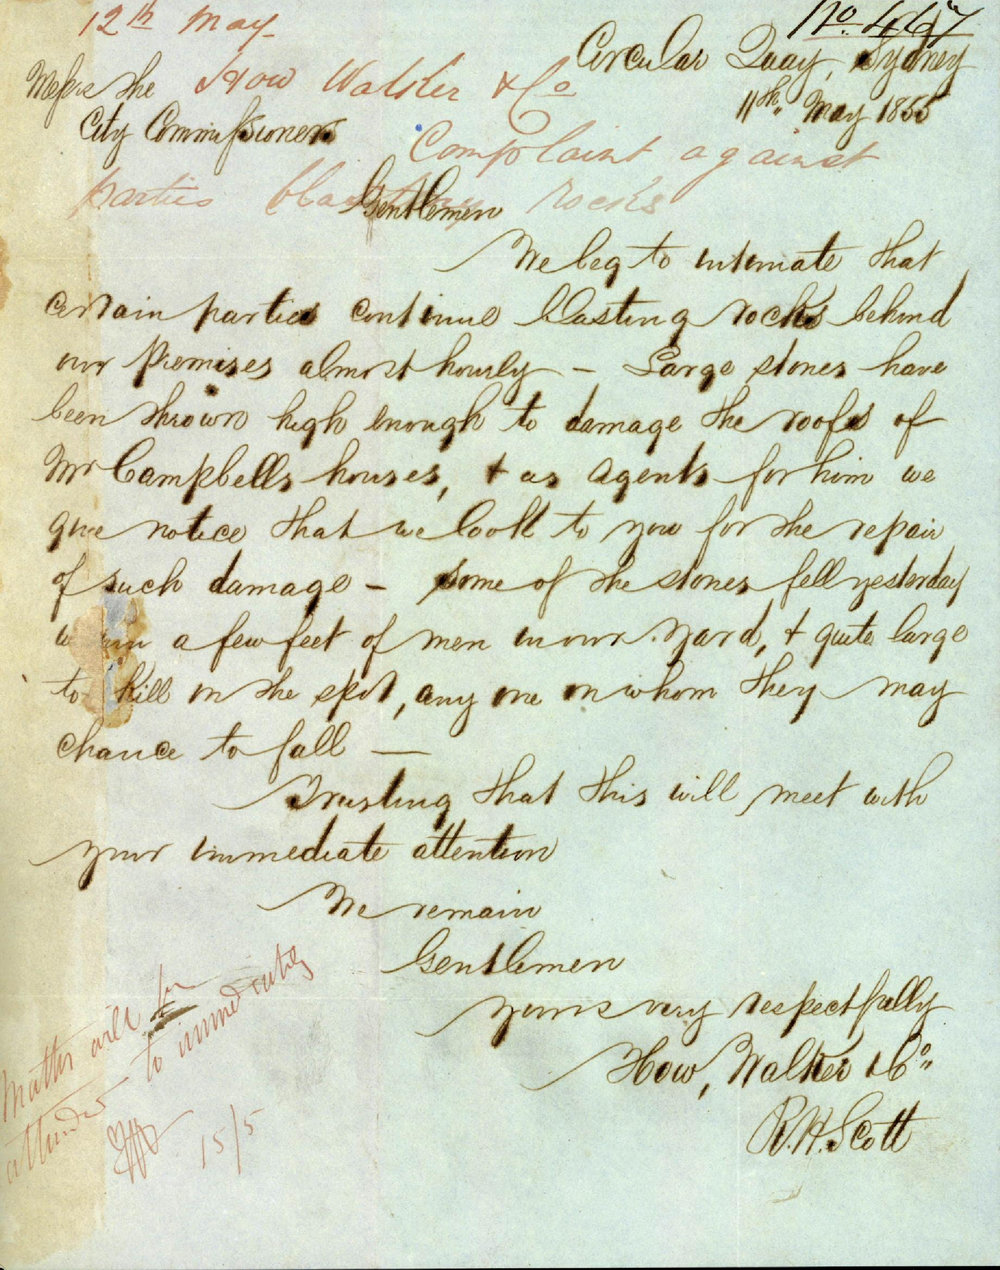 12th May
No. 467
Circular Quay, Sydney
11th May 1855
Messrs The
City Commissioners
How Walker & Co
Complaint against
parties blasting rocks
Gentlemen
We beg to intimate that
certain parties continue blasting rocks behind
our Premises almost hourly – Large stones have
been thrown high enough to damage the roofs of
Mr Campbells houses, & as agents for him we
give notice that we look to you for the repair
of such damage – some of the stones fell yesterday
within a few feet of men in our yard, & quite large
to kill on the spot, any one on whom they may
chance to fall —
Trusting that this will meet with
your immediate attention
We remain
Gentlemen
Yours very respectfully
How, Walker & Co
R. H. Scott
Matter will be
attended to immediately
15/5